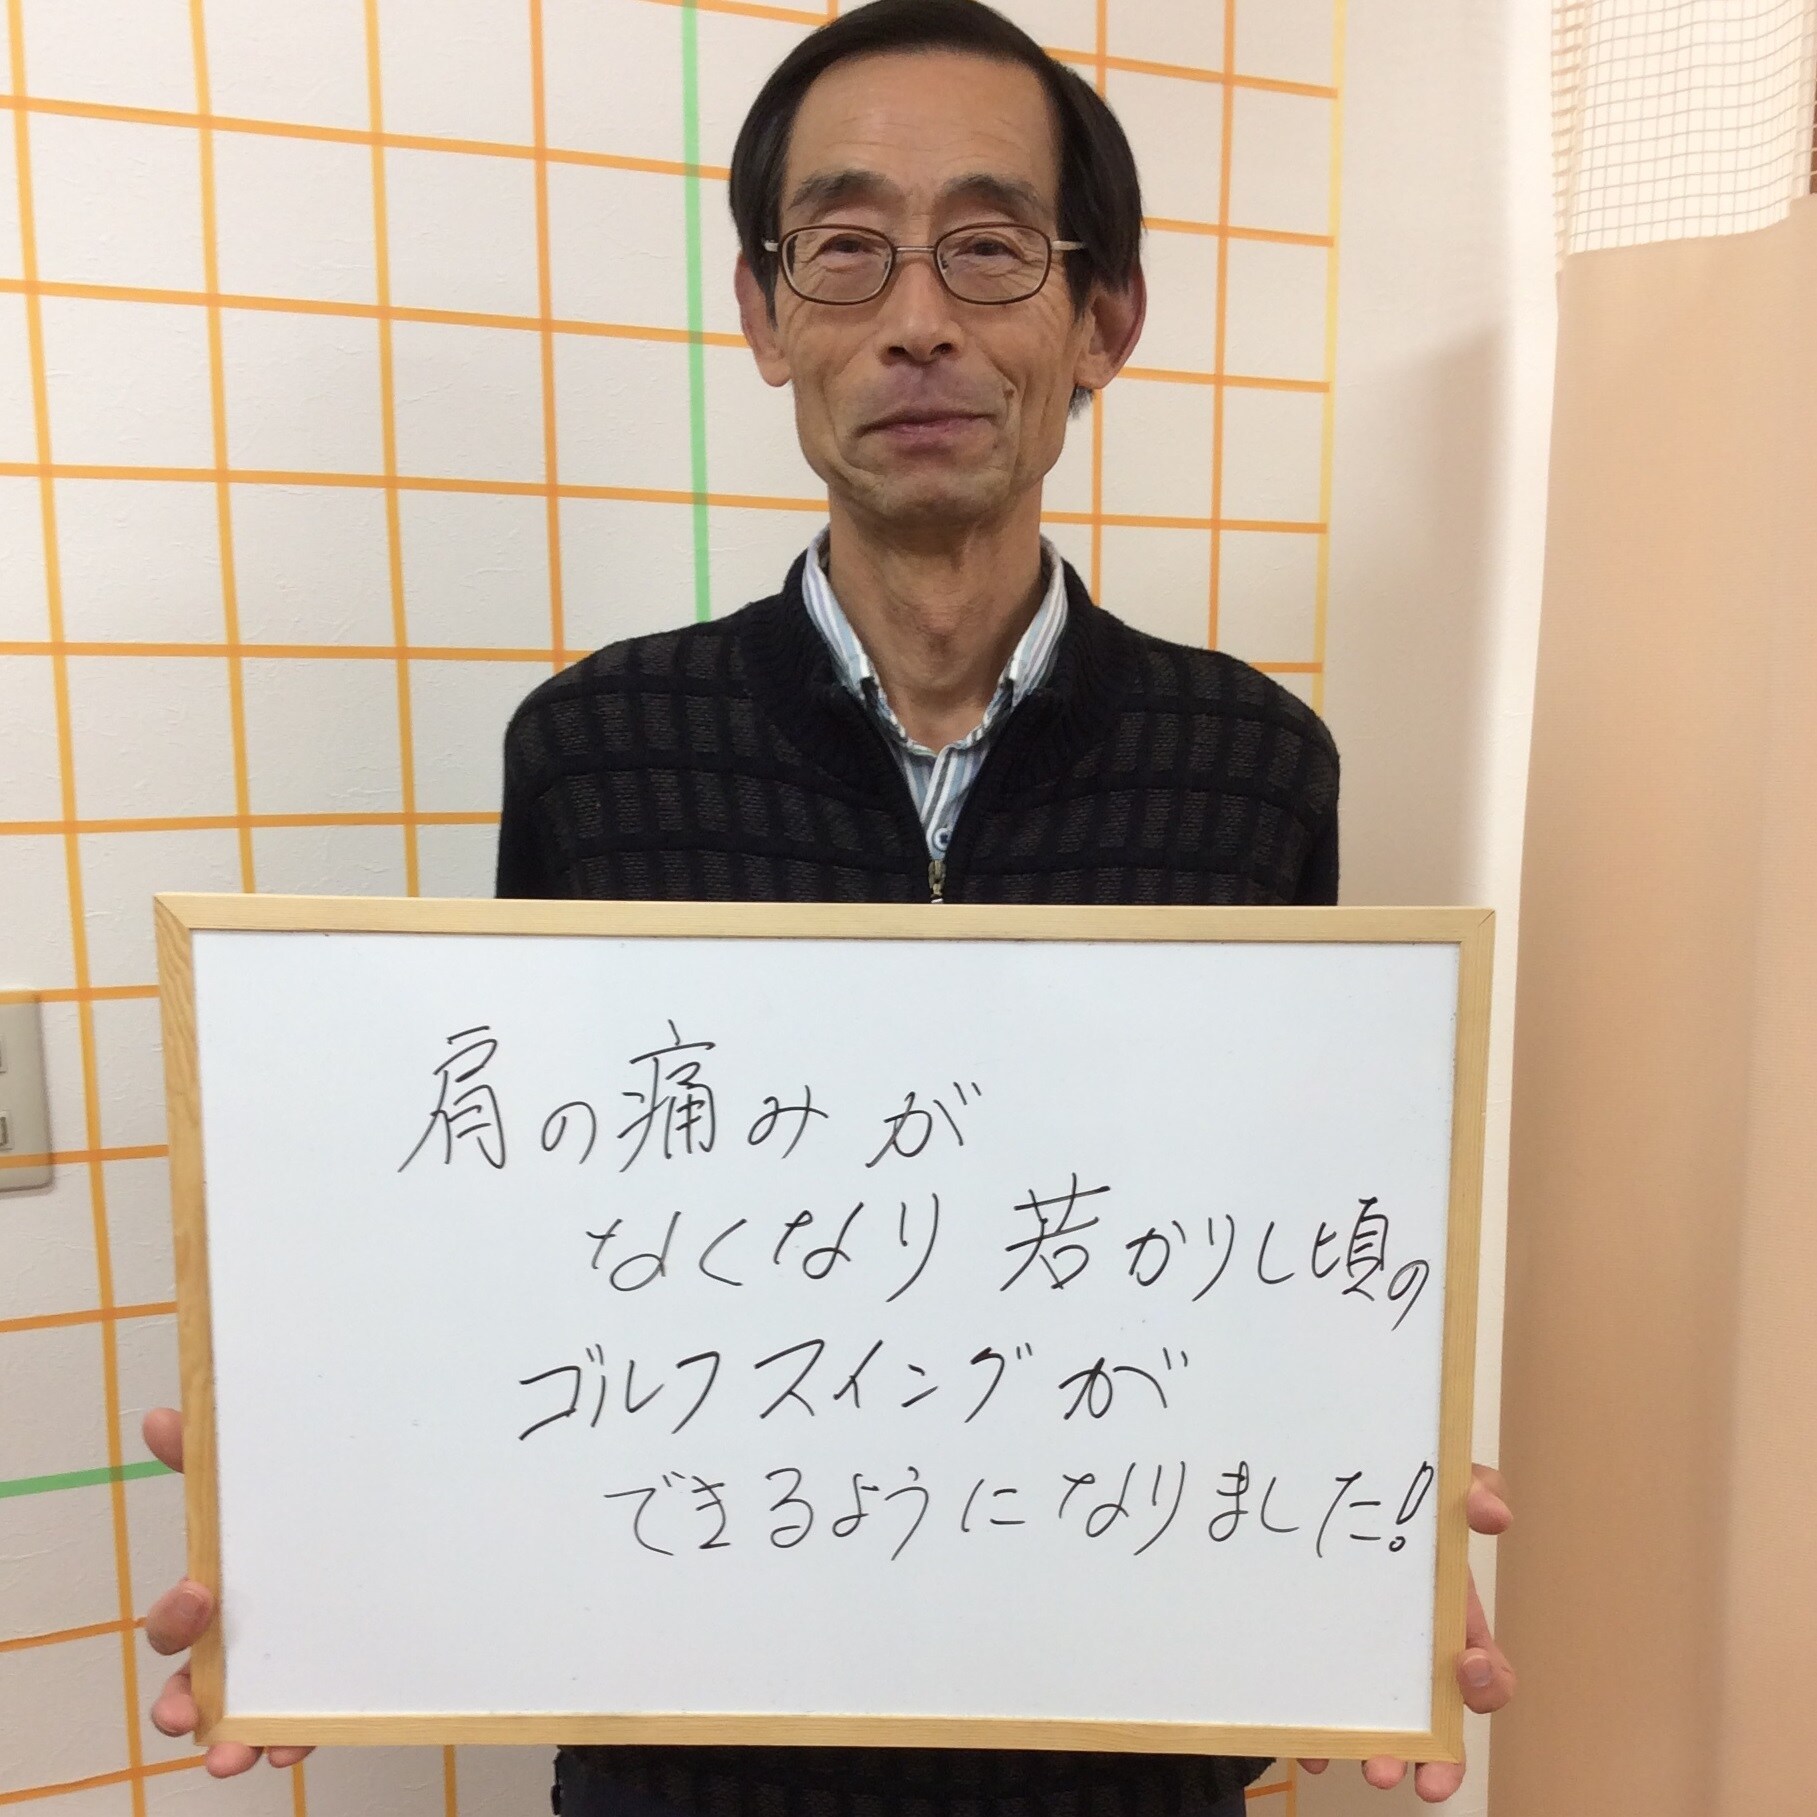 肩の痛みが
なくなり若かりし頃の
ゴルフスイングが
できるようになりました!